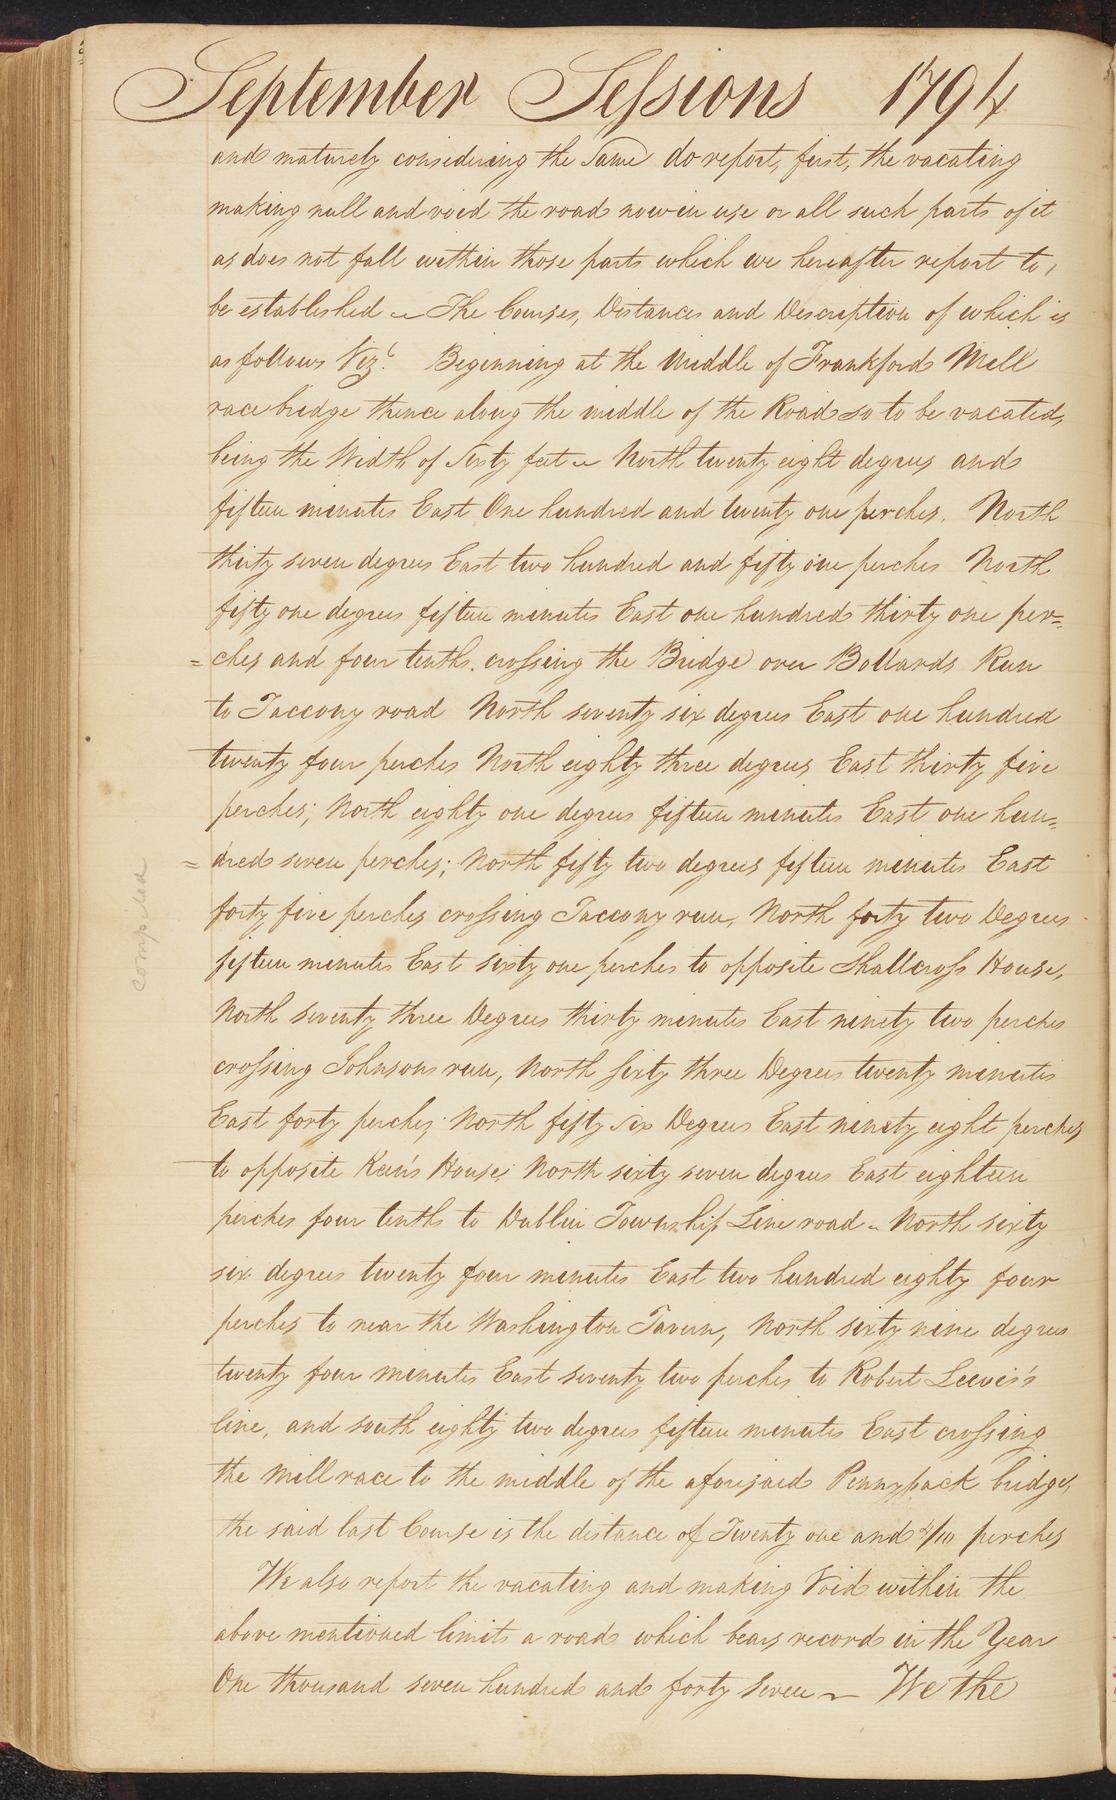 September Sessions 1794
and maturely considering the Same do report, first, the vacating
making null and void the road now in use or all such parts of it
as does not fall within those parts which we hereafter report to,
be established – The Courses, Distances and Description of which is
as follows Vizt. Beginning at the Middle of Frankford Mill
race bridge thence along the middle of the Road so to be vacated,
being the Width of Sixty feet – North twenty eight degrees and
fifteen minutes East One hundred and twenty one perches. North
thirty seven degrees East two hundred and fifty one perches North
fifty one degrees fifteen minutes East one hundred thirty one per=
= ches and four tenths. crossing the Bridge over Bollards Run
to Taccony road North seventy six degrees East one hundred
twenty four perches North eighty three degrees East thirty five
perches; North eighty one degrees fifteen minutes East one hun=
= dred seven perches; North fifty two degrees fifteen minutes East
forty five perches crossing Taccony run, North forty two Degrees
fifteen minutes East sixty one perches to opposite Shallcross House,
North seventy three Degrees thirty minutes East ninety two perches
crossing Johnsons run, North sixty three Degrees twenty minutes
East forty perches; North fifty Six Degrees East ninety eight perches
to opposite Keen's House; North sixty seven degrees East eighteen
perches four tenths to Dublin Township Line road – North sixty
six degrees twenty four minutes East two hundred eighty four
perches to near the Washington Tavern, North sixty nine degrees
twenty four minutes East seventy two perches to Robert Lewis's
line, and south eighty two degrees fifteen minutes East crossing
the Mill race to the middle of the aforesaid Pennypack bridge,
the said last Course is the distance of Twenty one and /10 perches
We also report the vacating and making Void within the
above mentioned limits a road which bears record in the Year
One thousand seven hundred and forty Seven – We the
compared